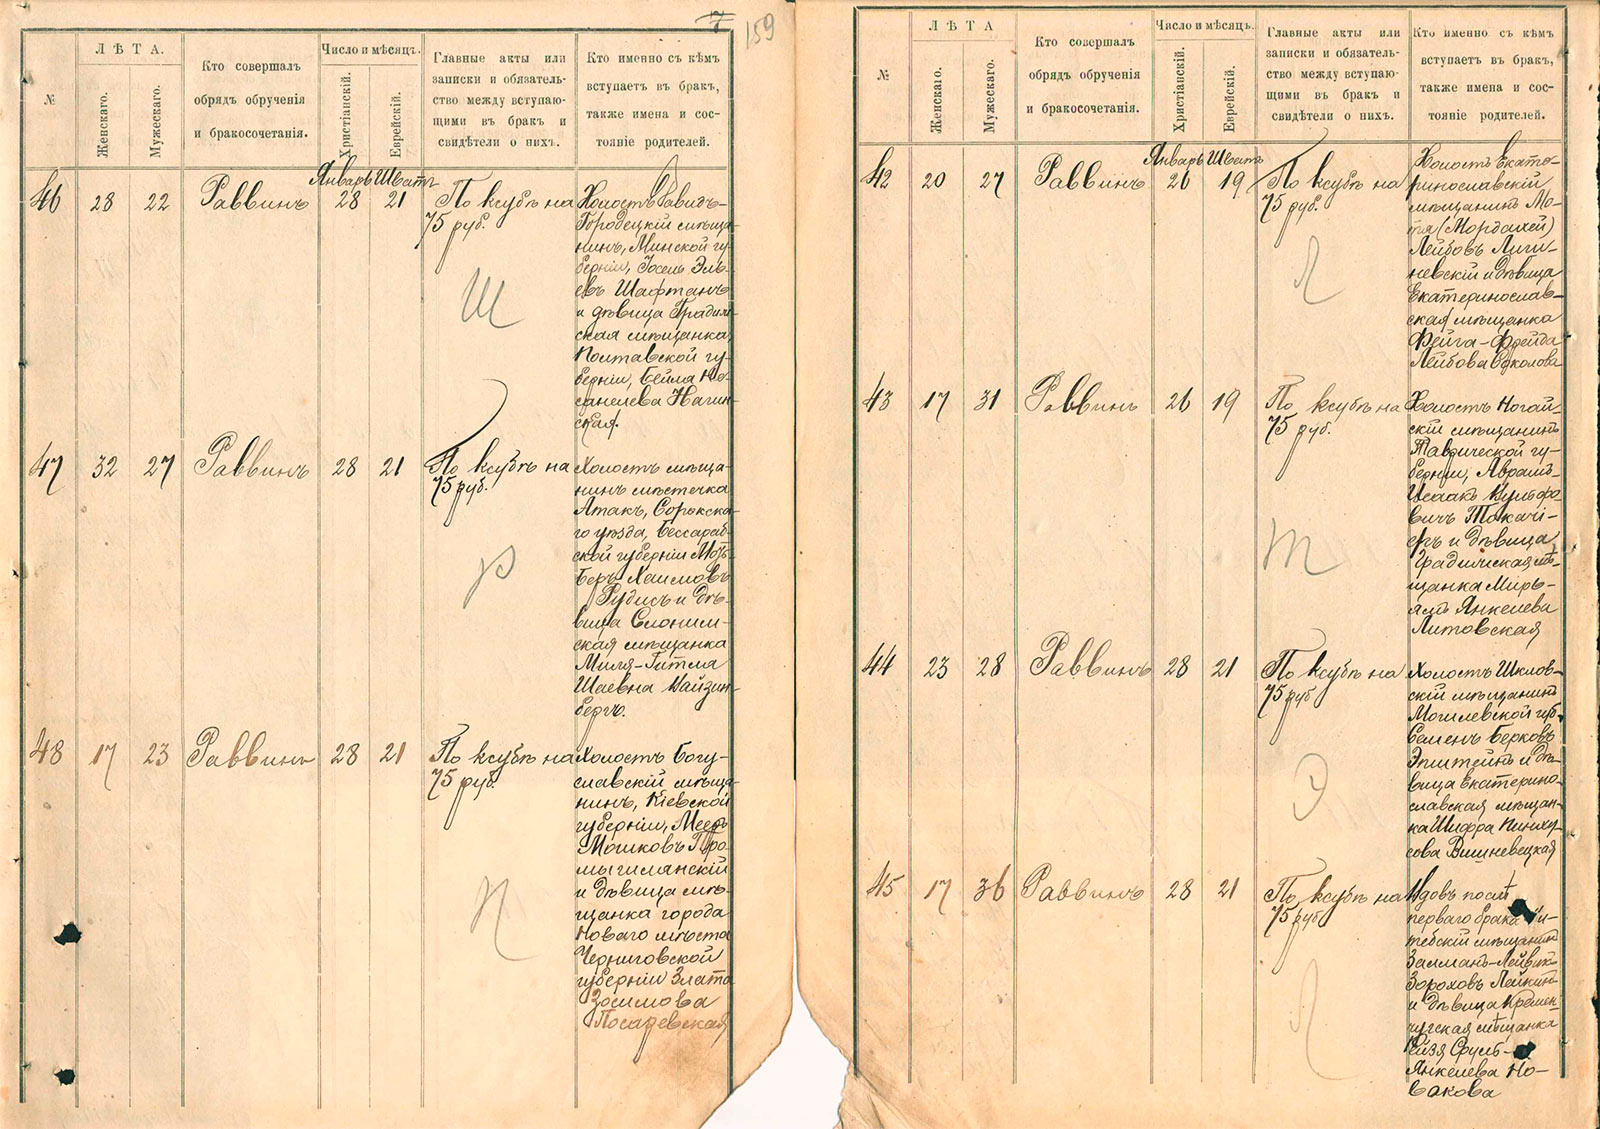 7
159
№
ЛѢТА.
Женскаго.
Мужескаго.
Кто совершалъ
обрядъ обрученія
и бракосочетанія.
Число и мѣсяцъ.
Христіанскій.
Еврейскій.
Главные акты или
записки и обязатель-
ство между вступаю-
щими въ бракъ и
свидѣтели о нихъ.
Кто именно съ кѣмъ
вступаетъ въ бракъ,
также имена и сос-
тояніе родителей.
Январь Шватъ
46 28 22 Раввинъ 28 21 По ксубѣ на
75 руб.
Ш
Холостъ Давидъ-
Городецкій мѣща-
нинъ, Минской гу-
берніи, Іосель Эль-
евъ Шафтанъ
и дѣвица Градиж-
ская мѣщанка,
Полтавской гу-
берніи, Бейла
Нагин-
ская.
47 32 27 Раввинъ 28 21 По ксубѣ на
75 руб.
Р
Холостъ мѣща-
нинъ мѣстечка
Атакъ, Сорокска-
го уѣзда, Бессараб-
ской губерніи
Беръ Хаимовъ
Рудисъ и дѣ-
вица Слоним-
ская мѣщанка
Миля-Гитля
Шаевна Вайзин-
бергъ.
48 17 23 Раввинъ 28 21 По ксубѣ на
75 руб.
П
Холостъ Богу-
славскій мѣща-
нинъ, Кіевской
губерніи, Мееръ
Мошковъ Про-
мыгилянскій
и дѣвица мѣ-
щанка города
Новаго мѣста
Черниговской
губерніи Злата
Зосимова
Посаревская
№
ЛѢТА
Женскаго.
Мужескаго.
Кто совершалъ
обрядъ обрученія
и бракосочетанія.
Число и мѣсяцъ.
Христіанскій.
Еврейскій.
Главные акты или
записки и обязатель-
ство между вступаю-
щими въ бракъ и
свидѣтели о нихъ.
Кто именно съ кѣмъ
вступаетъ въ бракъ,
также имена и сос-
тояніе родителей.
Январь Шватъ
42 20 27 Раввинъ 26 19 По ксубѣ на
75 руб.
Л
Холостъ Екате-
ринославскій
мѣщанинъ Мо-
тя (Мордахей)
Лейбовъ Личи-
невскій и дѣвица
Екатеринослав-
ская мѣщанка
Фейга-Фрейда
Лейбова Соколова
43 17 31 Раввинъ 26 19 По ксубѣ на
75 руб.
Т
Холостъ Ногай-
скій мѣщанинъ
Таврической гу-
берніи, Абрамъ-
Исаакъ Вульфо-
вичъ Токачі-
еръ и дѣвица
Градижская мѣ-
щанка Мирь-
ямъ Янкелева
Литовская
44 23 28 Раввинъ 28 21 По ксубѣ на
75 руб
Э
Холостъ Шкловъ-
скій мѣщанинъ
Могилевской губ.
Семенъ Берковъ
Эпштейнъ и дѣ-
вица Екатерино-
славская мѣщан-
ка Шифра Пинху-
сова Вишневецкая
45 17 36 Раввинъ 28 21 По ксубѣ на
75 руб
Л
Вдовъ послѣ
перваго брака Ви-
тебскій мѣщанинъ
Залманъ-Лейвикъ
Зороховъ Лейкинъ
и дѣвица Кремен-
чугская мѣщанка
Рейзя Сруль-
Янкелева Но-
вакова